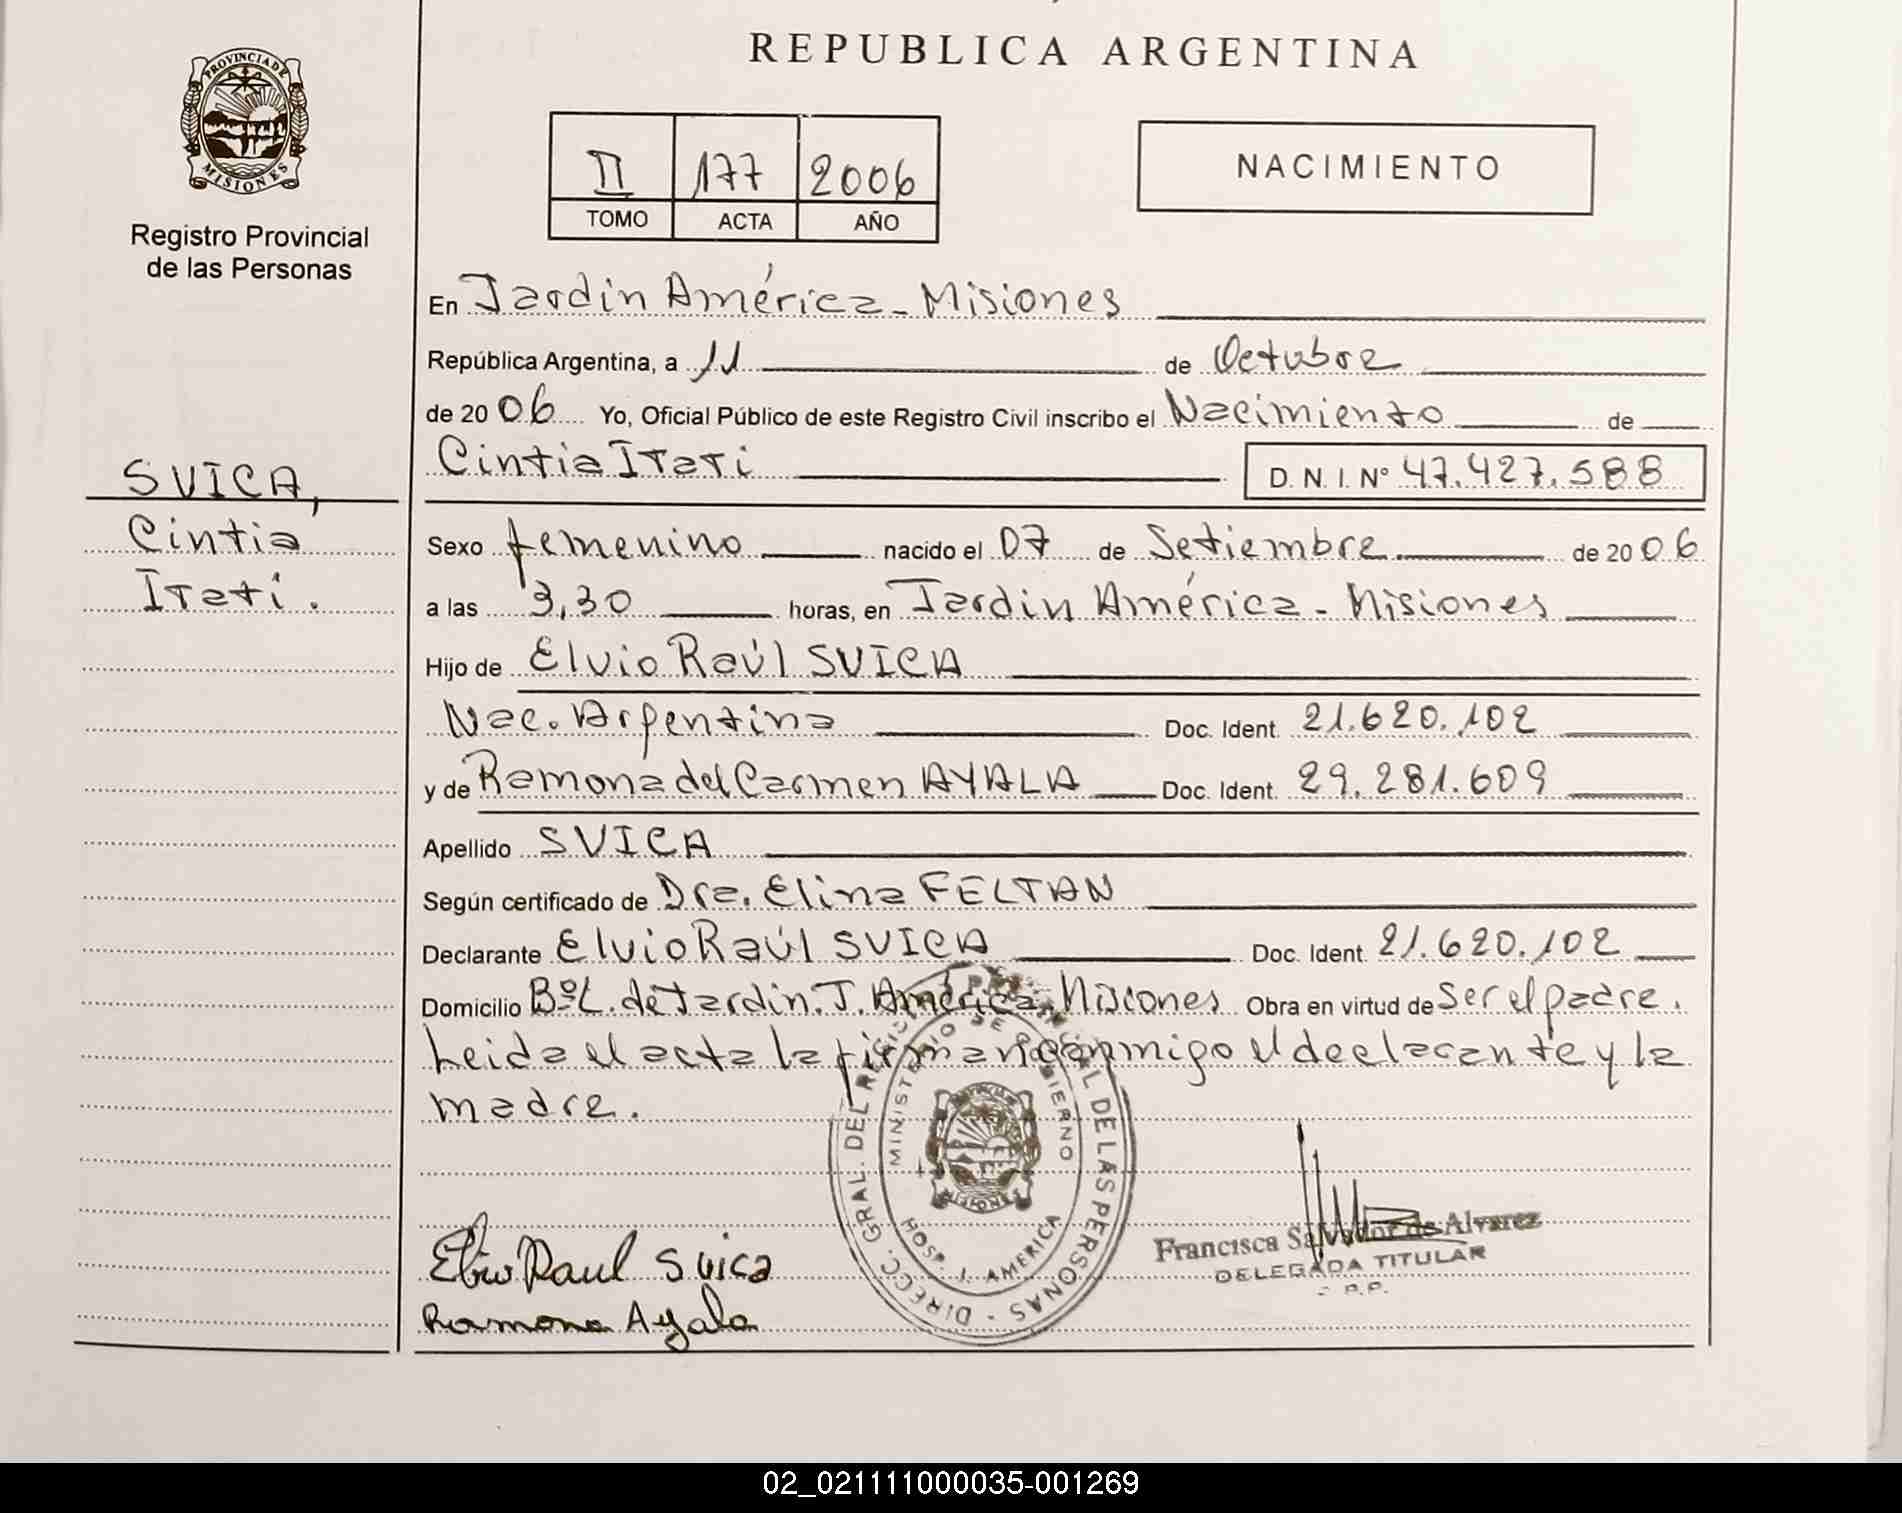 REPUBLICA ARGENTINA
PROVINCIA DE
MISIONES
Registro Provincial
de las Personas
II 177 2006
TOMO ACTA AÑO
NACIMIENTO
En Jardin América - Misiones
República Argentina, a 11 de Octubre
de 2006 Yo, Oficial Público de este Registro Civil inscribo el Nacimiento de
Cintia Itati D. N. I. N° 47.427.588
SVICA,
Cintia
Itati.
Sexo femenino nacido el 07 de Setiembre de 2006
a las 3,30 horas, en Jardin América - Misiones
Hijo de Elvio Raúl SVICA
Nac. Argentina Doc. Ident. 21.620.102
y de Ramona del Carmen AYALA Doc. Ident. 29.281.609
Apellido SVICA
Según certificado de Dra. Elina FELTAN
Declarante Elvio Raúl SVICA Doc. Ident. 21.620.102
Domicilio Bº L. de Jardin. J. América - Misiones Obra en virtud de Ser el padre.
Leida el acta la firman conmigo el declarante y la
madre.
DIRECC. GRAL. DEL REGISTRO PROVINCIAL DE LAS PERSONAS
MINISTERIO DE GOBIERNO
HOSP. J. AMERICA
Elvio Raul Svica
Ramona Ayala
Francisca Salvador de Alvarez
DELEGADA TITULAR
R.P.P.
02_021111000035-001269